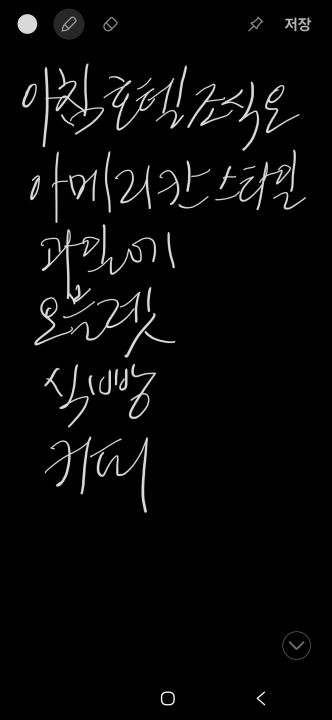 저장
아침 호텔 조식은
아메리칸 스타일
과일에
오믈렛
식빵
커피